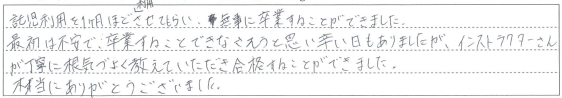 託児利用を1ヶ月ほどさせてもらい、無事に卒業することができました。
最初は不安で、卒業することできなそうと思い辛い日もありましたが、インストラクターさん
が丁寧に根気づよく教えていただき合格することができました。
本当にありがとうございました。